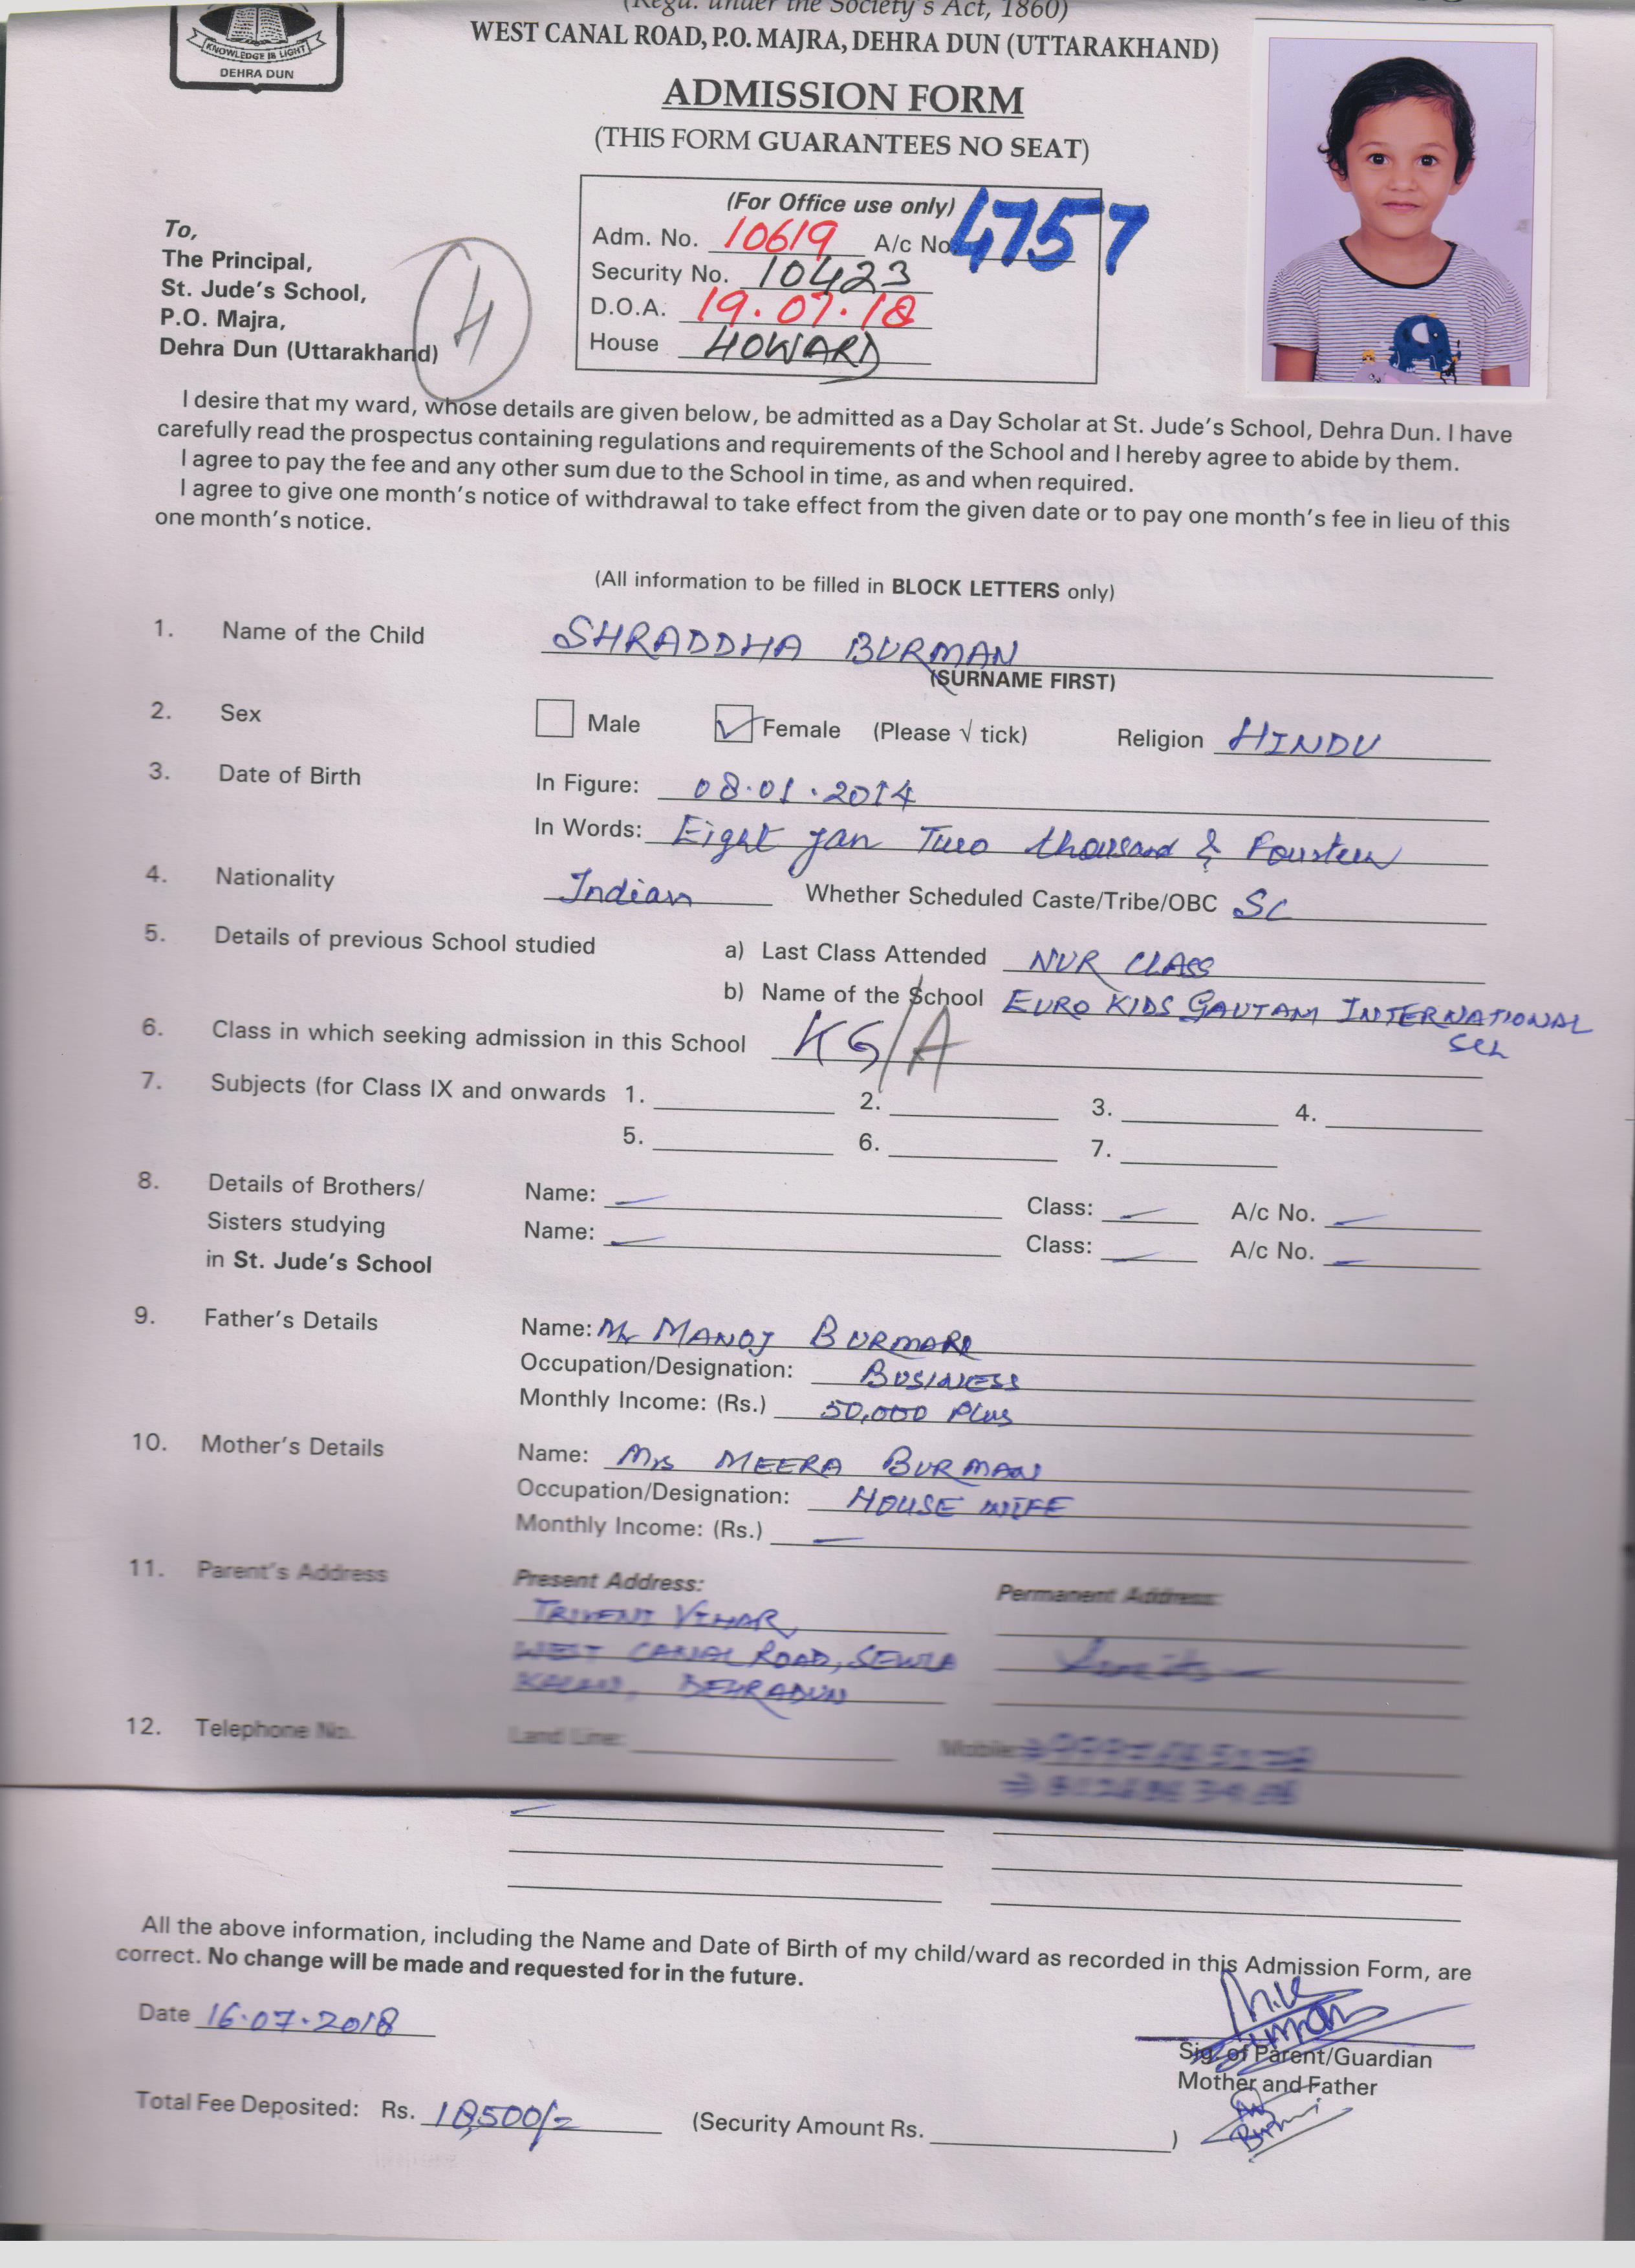 (Regd. under the Society's Act, 1860)
WEST CANAL ROAD, P.O. MAJRA, DEHRA DUN (UTTARAKHAND)
KNOWLEDGE IS LIGHT
DEHRA DUN
ADMISSION FORM
(THIS FORM GUARANTEES NO SEAT)
(For Office use only)
Adm. No. 10619 A/c No. 4757
Security No. 10423
D.O.A. 19.07.18
House HOWARD
To,
The Principal,
St. Jude's School,
P.O. Majra,
Dehra Dun (Uttarakhand)
4
I desire that my ward, whose details are given below, be admitted as a Day Scholar at St. Jude's School, Dehra Dun. I have
carefully read the prospectus containing regulations and requirements of the School and I hereby agree to abide by them.
I agree to pay the fee and any other sum due to the School in time, as and when required.
I agree to give one month's notice of withdrawal to take effect from the given date or to pay one month's fee in lieu of this
one month's notice.
(All information to be filled in BLOCK LETTERS only)
1. Name of the Child SHRADDHA BURMAN
(SURNAME FIRST)
2. Sex Male Female (Please √ tick) Religion HINDU
3. Date of Birth In Figure: 08.01.2014
In Words: Eight Jan Two thousand & Fourteen
4. Nationality Indian Whether Scheduled Caste/Tribe/OBC SC
5. Details of previous School studied a) Last Class Attended NUR CLASS
b) Name of the School EURO KIDS GAUTAM INTERNATIONAL
SCL
6. Class in which seeking admission in this School KG/A
7. Subjects (for Class IX and onwards 1. 2. 3. 4.
5. 6. 7.
8. Details of Brothers/ Name: Class: A/c No.
Sisters studying Name: Class: A/c No.
in St. Jude's School
9. Father's Details Name: Mr MANOJ BURMAN
Occupation/Designation: BUSINESS
Monthly Income: (Rs.) 50,000 Plus
10. Mother's Details Name: Mrs MEERA BURMAN
Occupation/Designation: HOUSE WIFE
Monthly Income: (Rs.)
11. Parent's Address Present Address: Permanent Address:
TRIVENI VIHAR,
WEST CANAL ROAD, SEWLA
KALAN, DEHRADUN
12. Telephone No. Land Line: Mobile:
All the above information, including the Name and Date of Birth of my child/ward as recorded in this Admission Form, are
correct. No change will be made and requested for in the future.
Date 16.07.2018
Sig. of Parent/Guardian
Mother and Father
Total Fee Deposited: Rs. 18,500/= (Security Amount Rs. )